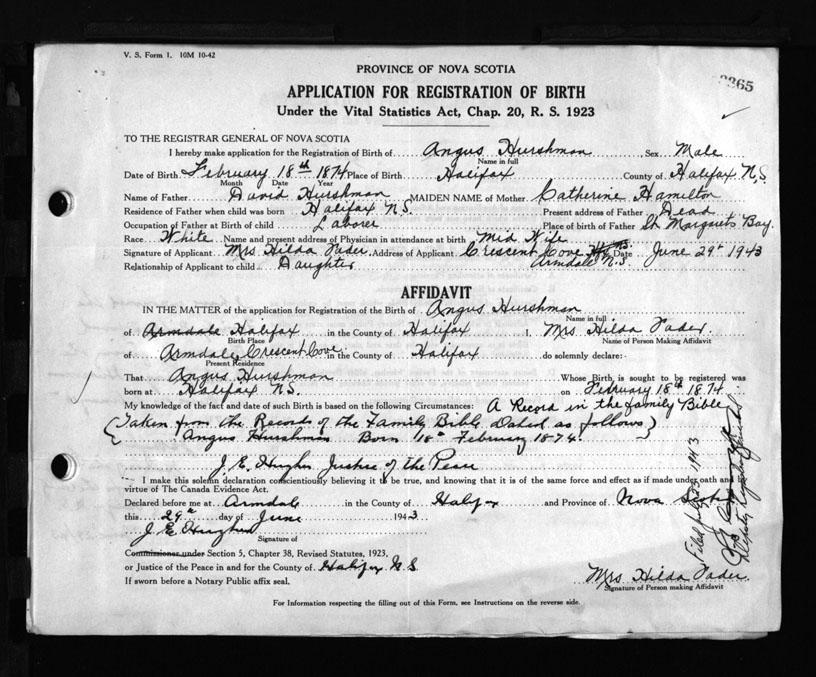 V. S. Form 1. 10M 10-42
PROVINCE OF NOVA SCOTIA
APPLICATION FOR REGISTRATION OF BIRTH
Under the Vital Statistics Act, Chap. 20, R. S. 1923
TO THE REGISTRAR GENERAL OF NOVA SCOTIA
I hereby make application for the Registration of Birth of Angus Hurshman Sex Male
Name in full
Date of Birth February 18th 1874 Place of Birth Halifax County of Halifax N.S.
Month Date Year
Name of Father David Hurshman MAIDEN NAME of Mother Catherine Hamilton
Residence of Father when child was born Halifax N.S. Present address of Father Dead
Occupation of Father at Birth of child Laborer Place of birth of Father St Margrets Bay.
Race White Name and present address of Physician in attendance at birth Mid Wife
Signature of Applicant Mrs Hilda Vader. Address of Applicant Crescent Cove Date June 29th 1943
Armdale N.S.
Relationship of Applicant to child Daughter
AFFIDAVIT
IN THE MATTER of the application for Registration of the Birth of Angus Hurshman
Name in full
of Armdale Halifax in the County of Halifax I, Mrs Hilda Vader.
Birth Place Name of Person Making Affidavit
of Armdale Crescent Cove in the County of Halifax do solemnly declare:
Present Residence
That Angus Hurshman Whose Birth is sought to be registered was
born at Halifax N.S. on February 18th 1874
My knowledge of the fact and date of such Birth is based on the following Circumstances: A Record in the family Bible
(Taken from the Records of the Family Bible Dated as follows)
Angus Hurshman Born 18th February 1874.
J. E. Hughes Justice of the Peace
I make this solemn declaration consciously believing it to be true, and knowing that it is of the same force and effect as if made under oath and
virtue of The Canada Evidence Act.
Declared before me at Armdale in the County of Halifax and Province of Nova Scotia
this 29th day of June 1943
J. E. Hughes
Signature of
Commissioner under Section 5, Chapter 38, Revised Statutes, 1923,
or Justice of the Peace in and for the County of Halifax N.S
If sworn before a Notary Public affix seal.
Mrs Hilda Vader.
Signature of Person making Affidavit
For Information respecting the filling out of this Form, see Instructions on the reverse side.